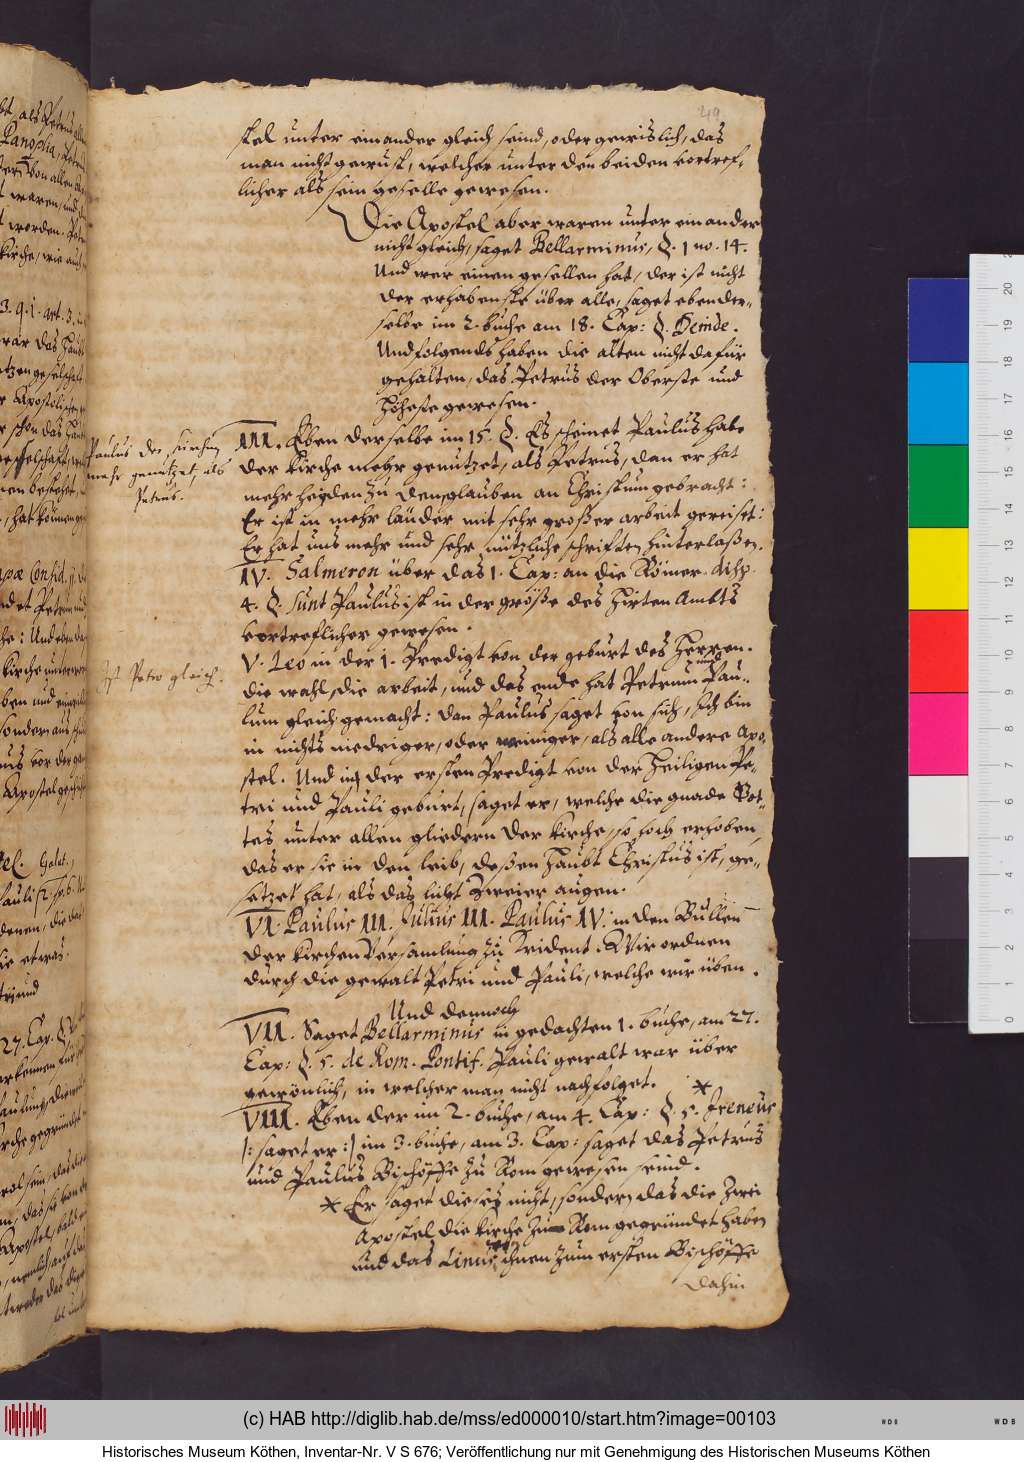 49
stel unter einander gleich seind, oder gewislich, das
man nicht gewust, welcher unter den beiden vortref-
licher als sein geselle gewesen.
Die Apostel aber waren unter einander
nicht gleich, saget Bellarminus, §. 1 no. 14.
Und wer einen gesellen hat, der ist nicht
der erhabenste über alle, saget eben der-
selbe im 2. buche am 18. Cap: §. Deinde.
Und folgends haben die alten nicht dafür
gehalten, das Petrus der Oberste und
Höheste gewesen.
III. Eben derselbe im 15. §. Es scheinet Paulus habe
der kirche mehr genutzet, als Petrus, dan er hat
mehr heyden zu dem glauben an Christum gebracht:
Er ist in mehr länder mit sehr großer arbeit gereiset:
Er hat uns mehr und sehr nützliche schriften hinterlaßen.
Paulus der kirchen
mehr genützet, als
Petrus.
IV. Salmeron über das 1. Cap: an die Römer. disp.
4. §. Sunt Paulus ist in der größe des Hirten Ambts
vortreflicher gewesen.
V. Leo in der 1. Predigt von der geburt des Herren.
die wahl, die arbeit, und das ende hat Petrum und Pau-
lum gleich gemacht: dan Paulus saget von sich, Ich bin
in nichts niedriger, oder weiniger, als alle andere Apo-
stel. Und in der ersten Predigt von der Heiligen Pe-
tri und Pauli geburt, saget er, welche die gnade Got-
tes unter allen gliedern der kirche, so hoch erhoben,
das er sie in den leib, deßen Haubt Christus ist, ge-
setzet hat, als das licht zweier augen.
Ist Petro gleich.
VI. Paulus III. Julius III. Paulus IV. in den Bullen
der kirchen Versamlung zu Trident. Wir ordnen
durch die gewalt Petri und Pauli, welche wir üben.
Und dennoch
VII. Saget Bellarminus in gedachten 1. buche, am 27.
Cap: §. 5. de Rom. Pontif. Pauli gewalt war über
gewönlich, in welcher man nicht nachfolget. *
VIII. Eben der im 2. buche, am 4. Cap: §. 5. Ireneus
|: saget er :| im 3. buche, am 3. Cap: saget das Petrus
und Paulus Bischöffe zu Rom gewesen seind.
* Er saget dieses nicht, sondern das die zwei
Apostel die kirche zu Rom gegründet haben
und das Linus von ihnen zum ersten Bischöffe
dahin
(c) HAB http://diglib.hab.de/mss/ed000010/start.htm?image=00103
Historisches Museum Köthen, Inventar-Nr. V S 676; Veröffentlichung nur mit Genehmigung des Historischen Museums Köthen